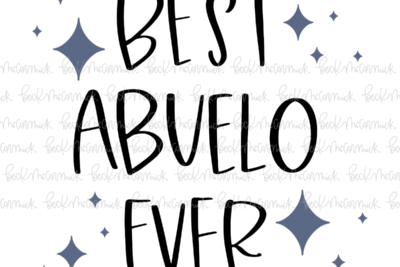 BEST
ABUELO
EVER